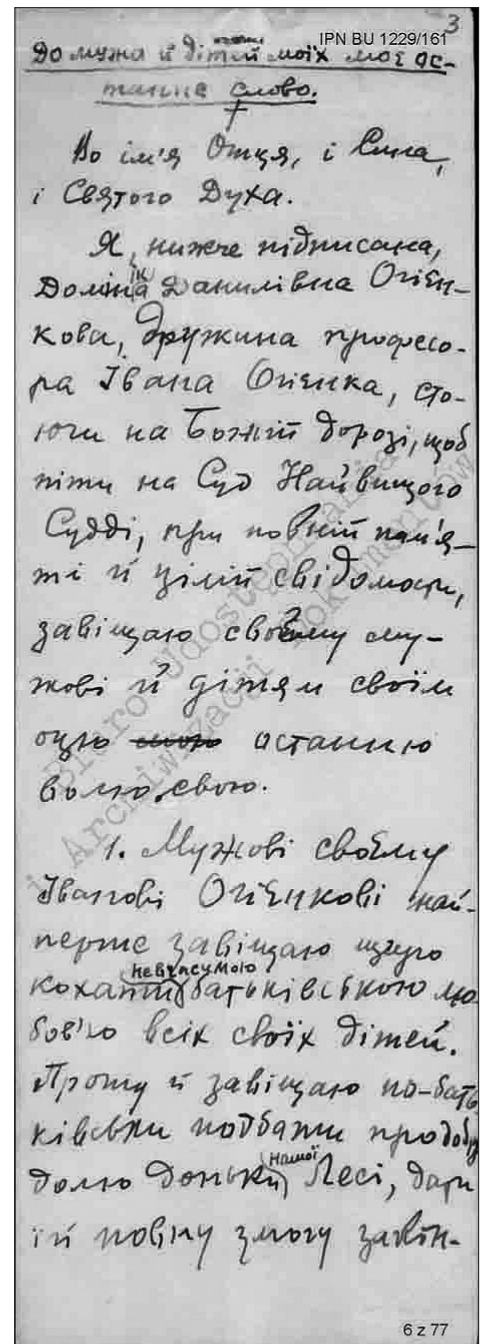 3
IPN BU 1229/161
До мужа й дітей моїх моє ос-
таннє слово.
Во ім'я Отця, і Сина,
і Святого Духа.
Я, нижче підписана,
Домініка Данилівна Огієн-
кова, дружина професо-
ра Івана Огієнка, сто-
ючи на Божій дорозі, щоб
піти на Суд Найвищого
Судді, при повній пам'я-
ті й цілій свідомости,
завіщаю своєму му-
жові й дітям своїм
оцю мою останню
волю свою.
1. Мужові своєму
Іванові Огієнкові най-
перше завіщаю щиро
невгасимою
кохати батьківською лю-
бов'ю всіх своїх дітей.
Прошу й завіщаю по-бать-
ківськи подбати про добру
долю доньки нашої Лесі, дати
їй повну змогу закін-
Biuro Udostępniania
i Archiwizacji Dokumentów
6 z 77